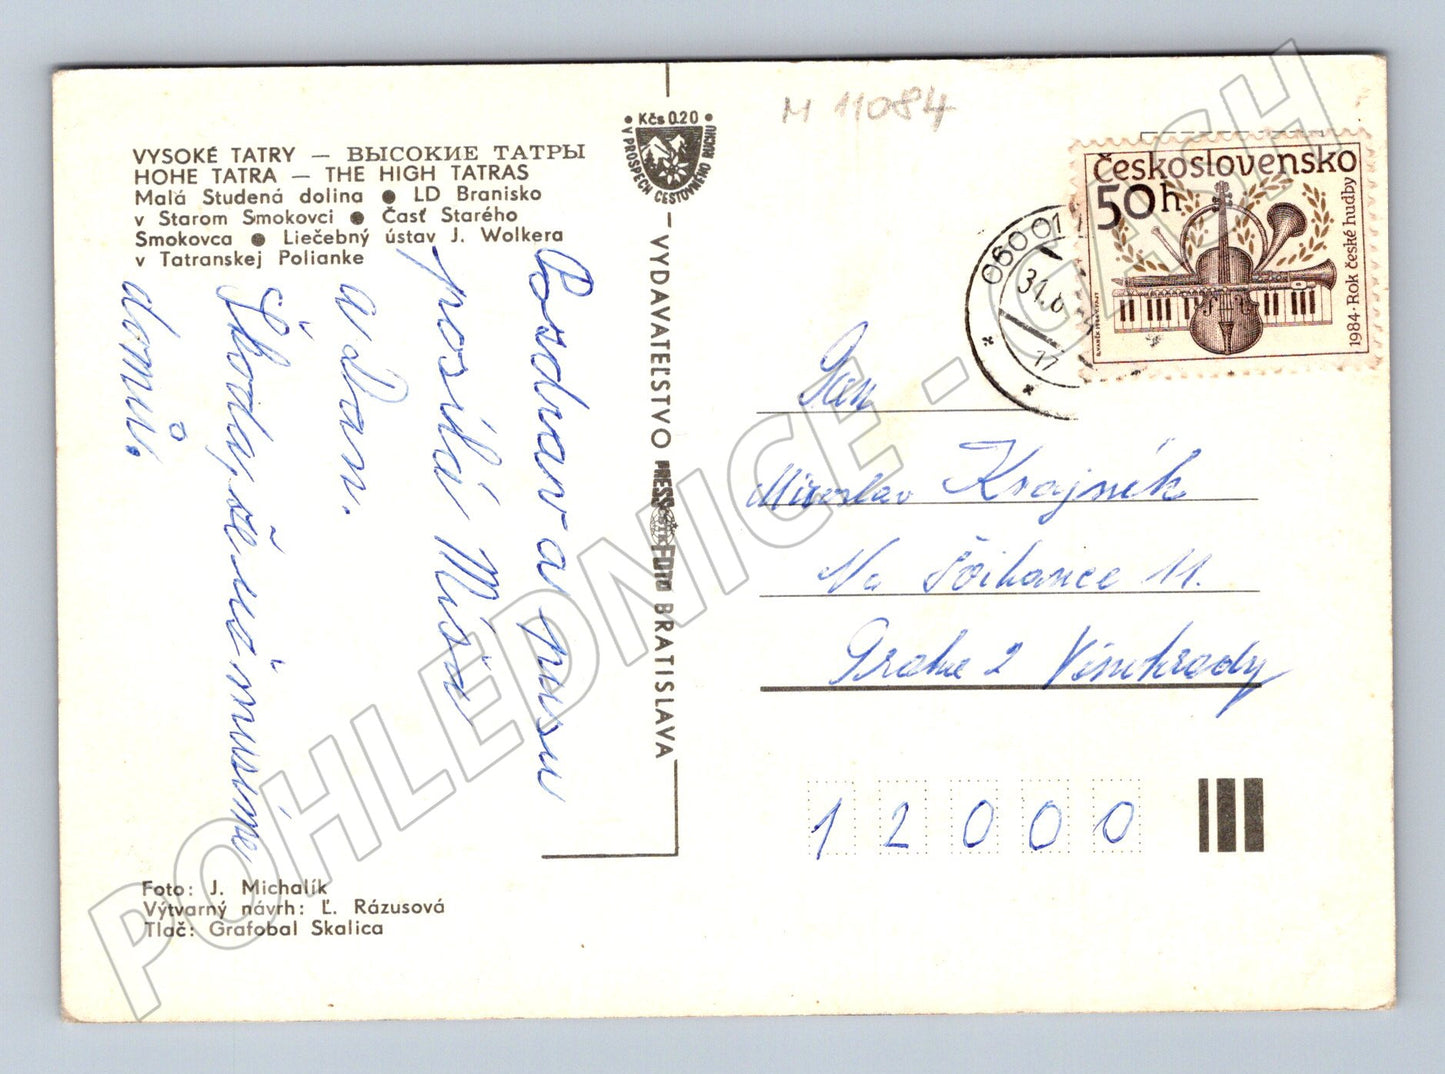 M 11084
VYSOKÉ TATRY — ВЫСОКИЕ ТАТРЫ
HOHE TATRA — THE HIGH TATRAS
Malá Studená dolina ● LD Branisko
v Starom Smokovci ● Časť Starého
Smokovca ● Liečebný ústav J. Wolkera
v Tatranskej Polianke
Pozdrav a pusu
posílá Míša
a Dan.
Škoda, že už musíme
domů.
Foto: J. Michalík
Výtvarný návrh: Ľ. Rázusová
Tlač: Grafobal Skalica
Kčs 0.20
V PROSPECH CESTOVNÉHO RUCHU
VYDAVATEĽSTVO PRESSFOTO BRATISLAVA
Československo
50h
1984 · Rok české hudby
06001
31.
17
Pan
Miroslav Krajník
Na Šafránce 11.
Praha 2 Vinohrady
12000
POHLEDNICE - CASH